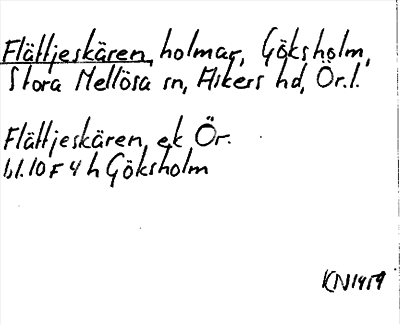 Flättjeskären, holmar, Göksholm,
Stora Mellösa sn, Askers hd, Ör.l.
Flättjeskären, ek Ör.
bl. 10 F 4 h Göksholm
KN 1959